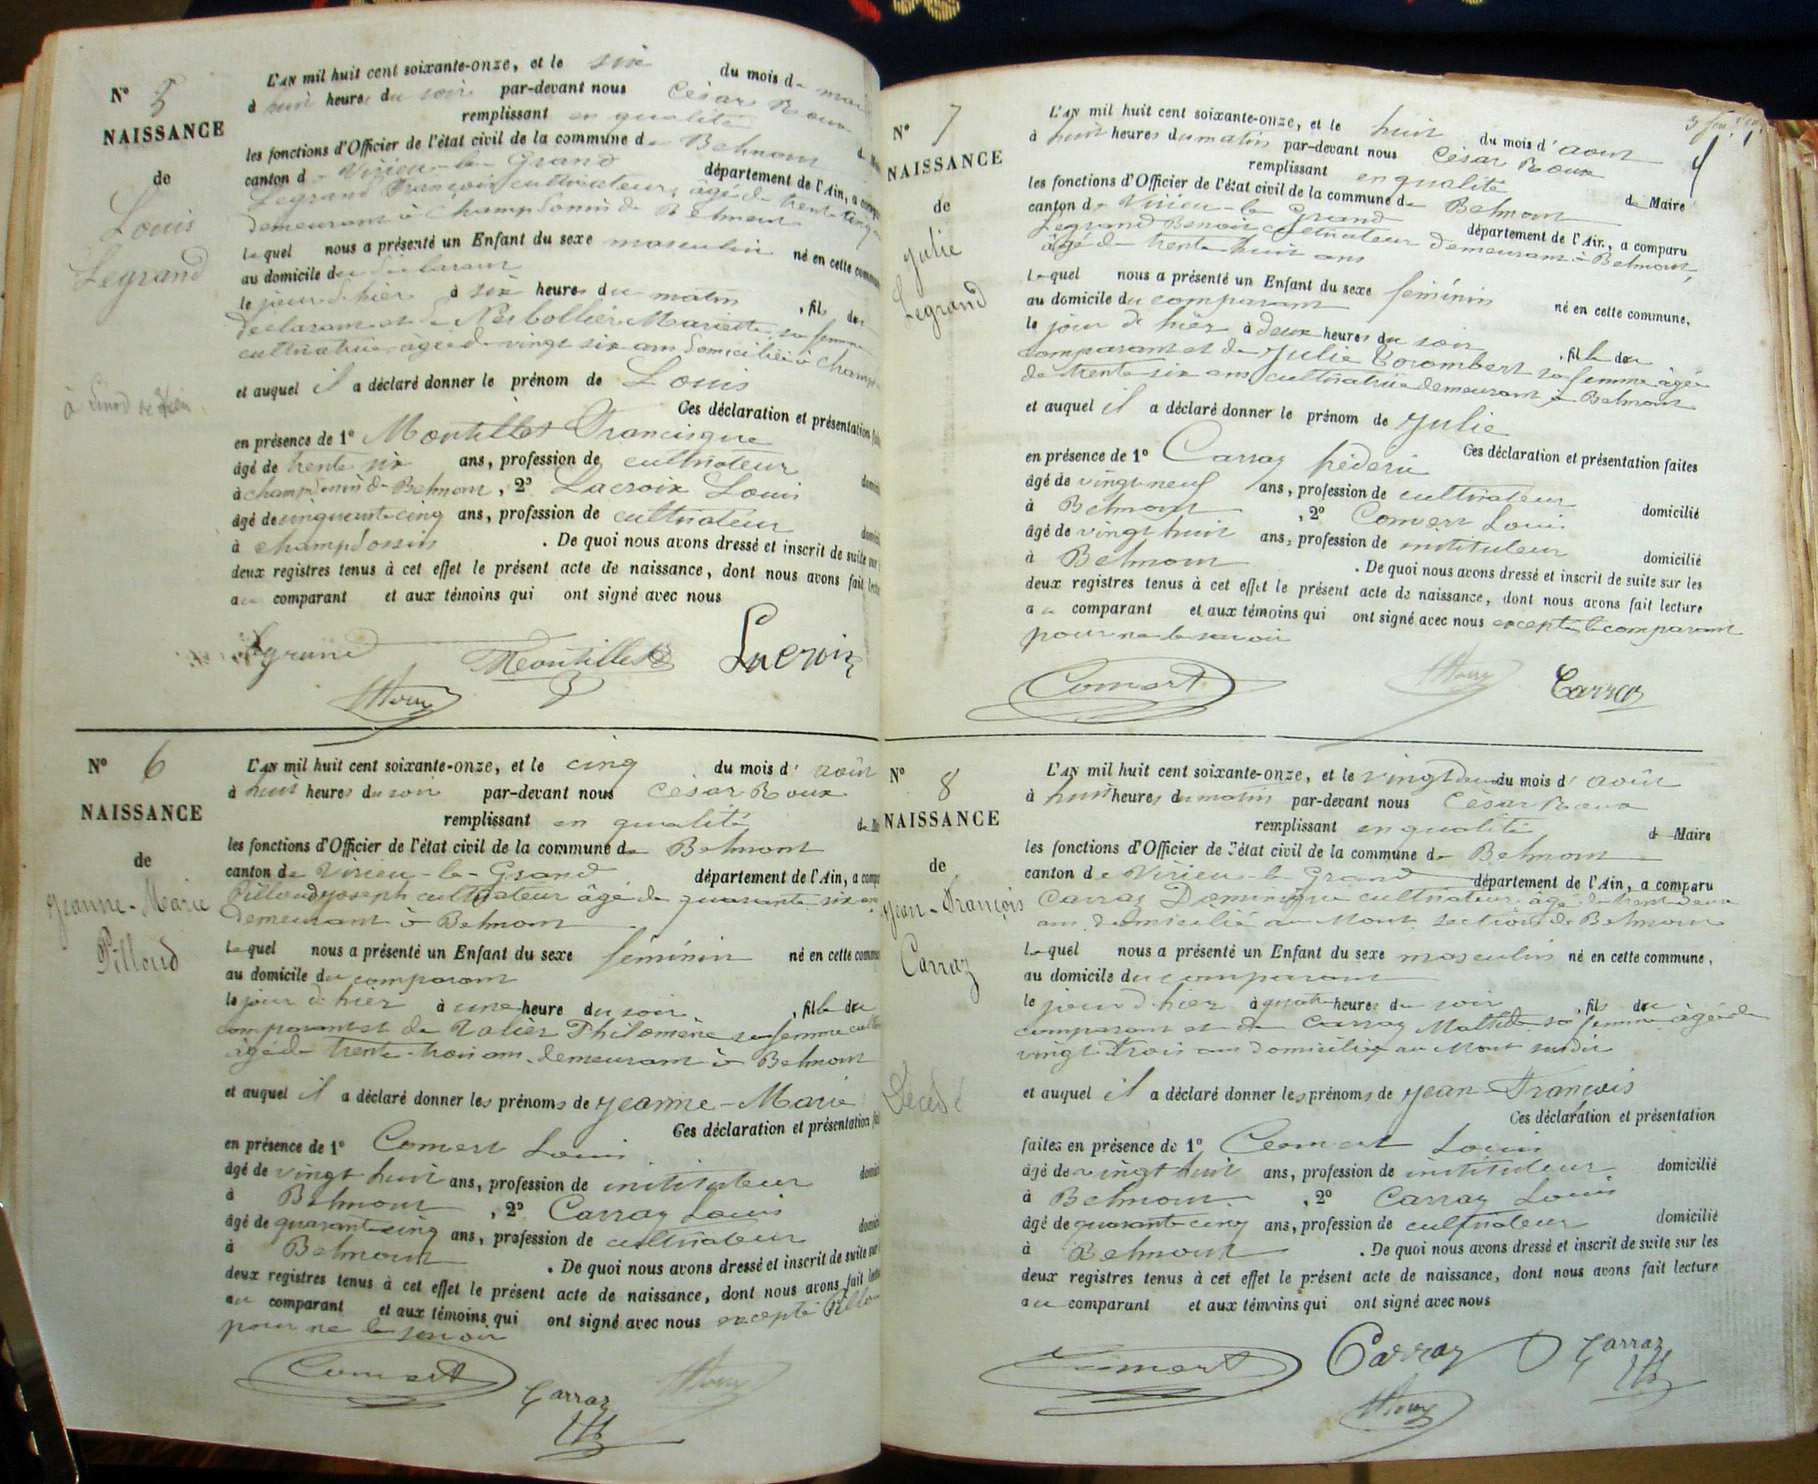 N° 5
NAISSANCE
de
Louis
Legrand
L'AN mil huit cent soixante-onze, et le six du mois de mai
à huit heures du soir par-devant nous César Roux
remplissant en qualité
les fonctions d'Officier de l'état civil de la commune de Belmont
canton de Virieu-le-Grand département de l'Ain, a
Legrand François cultivateur, âgé de trente
demeurant à Champdossin de Belmont
lequel nous a présenté un Enfant du sexe masculin né en cette
au domicile du déclarant
le jour d'hier à six heures du matin, fils du
déclarant et de Mariette, sa femme
cultivatrice, âgée de vingt six ans domiciliée à Champ
et auquel il a déclaré donner le prénom de Louis
Ces déclaration et présentation
en présence de 1° Montillet Francisque
âgé de trente six ans, profession de cultivateur
à Champdossin de Belmont, 2° Lacroix Louis
âgé de cinquante cinq ans, profession de cultivateur
à Champdossin. De quoi nous avons dressé et inscrit de suite sur
deux registres tenus à cet effet le présent acte de naissance, dont nous avons fait
au comparant et aux témoins qui ont signé avec nous
Legrand Montillet Lacroix
Roux
N° 6
NAISSANCE
de
Jeanne-Marie
Pilloud
L'AN mil huit cent soixante-onze, et le cinq du mois d'août
à huit heures du soir par-devant nous César Roux
remplissant en qualité
les fonctions d'Officier de l'état civil de la commune de Belmont
canton de Virieu-le-Grand département de l'Ain, a
Pilloud Joseph cultivateur âgé de quarante six ans
demeurant à Belmont
lequel nous a présenté un Enfant du sexe féminin né en cette
au domicile du comparant
le jour d'hier à une heure du soir, fille du
comparant et de Philomène sa femme
âgée de trente-trois ans demeurant à Belmont
et auquel il a déclaré donner les prénoms de Jeanne-Marie
Ces déclaration et présentation
en présence de 1° Comert Louis
âgé de vingt huit ans, profession de instituteur
à Belmont, 2° Carraz Louis
âgé de quarante cinq ans, profession de cultivateur
à Belmont. De quoi nous avons dressé et inscrit de suite
deux registres tenus à cet effet le présent acte de naissance, dont nous avons fait
au comparant et aux témoins qui ont signé avec nous excepté
pour ne le savoir
Comert Carraz Roux
N° 7
NAISSANCE
de
Julie
Legrand
L'AN mil huit cent soixante-onze, et le huit du mois d'août
à huit heures du matin par-devant nous César Roux
remplissant en qualité de Maire
les fonctions d'Officier de l'état civil de la commune de Belmont
canton de Virieu-le-Grand département de l'Ain, a comparu
Legrand Benoit cultivateur demeurant à Belmont,
âgé de trente huit ans
lequel nous a présenté un Enfant du sexe féminin né en cette commune,
au domicile du comparant
le jour de hier à deux heures du soir, fille du
comparant et de Julie Corombert sa femme âgée
de trente six ans cultivatrice demeurant à Belmont
et auquel il a déclaré donner le prénom de Julie
Ces déclaration et présentation faites
en présence de 1° Carraz fréderic
âgé de vingt-neuf ans, profession de cultivateur domicilié
à Belmont, 2° Comert Louis
âgé de vingt huit ans, profession de instituteur domicilié
à Belmont. De quoi nous avons dressé et inscrit de suite sur les
deux registres tenus à cet effet le présent acte de naissance, dont nous avons fait lecture
au comparant et aux témoins qui ont signé avec nous excepté le comparant
pour ne le savoir
Comert Roux Carraz
N° 8
NAISSANCE
de
Jean-François
Carraz
Décédé
L'AN mil huit cent soixante-onze, et le vingt deux du mois d'août
à huit heures du matin par-devant nous César Roux
remplissant en qualité de Maire
les fonctions d'Officier de l'état civil de la commune de Belmont
canton de Virieu-le-Grand département de l'Ain, a comparu
Carraz Dominique cultivateur âgé de trente deux
ans domicilié au Mont section de Belmont
lequel nous a présenté un Enfant du sexe masculin né en cette commune,
au domicile du comparant
le jour d'hier à quatre heures du soir, fils du
comparant et de Carraz Mathilde sa femme âgée de
vingt trois ans domiciliée au Mont susdit
et auquel il a déclaré donner les prénoms de Jean-François
Ces déclaration et présentation
faites en présence de 1° Comert Louis
âgé de vingt huit ans, profession de instituteur domicilié
à Belmont, 2° Carraz Louis
âgé de quarante-cinq ans, profession de cultivateur domicilié
à Belmont. De quoi nous avons dressé et inscrit de suite sur les
deux registres tenus à cet effet le présent acte de naissance, dont nous avons fait lecture
au comparant et aux témoins qui ont signé avec nous
Comert Carraz Carraz
Roux